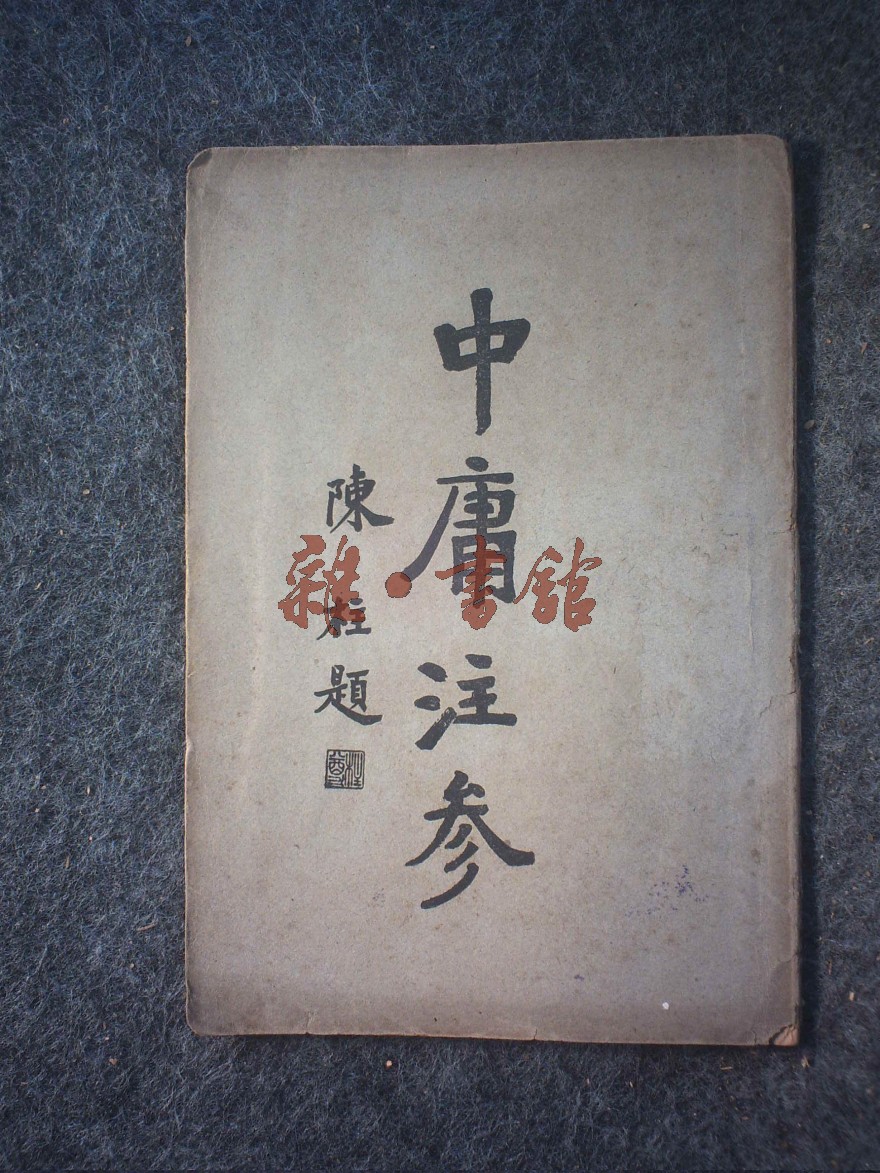 中庸注参
陳柱題
雜·書館